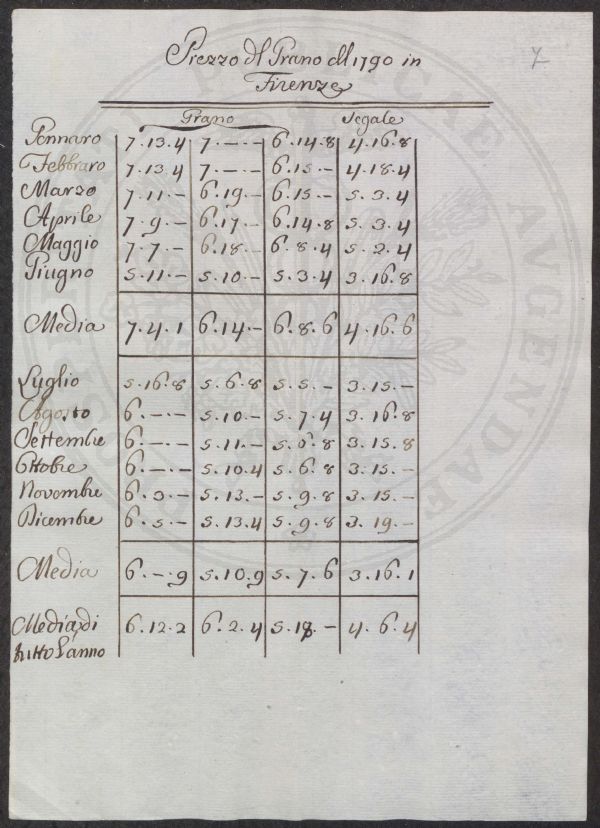 7
Prezzo dl Grano dll 1790 in
Firenze
Grano Segale
Gennaro 7.13.4 7.—.— 6.14.8 4.16.8
Febbraro 7.13.4 7.—.— 6.15.— 4.18.4
Marzo 7.11.— 6.19.— 6.15.— 5.3.4
Aprile 7.9.— 6.17.— 6.14.8 5.3.4
Maggio 7.7.— 6.18.— 6.8.4 5.2.4
Giugno 5.11.— 5.10.— 5.3.4 3.16.8
Media 7.4.1 6.14.— 6.8.6 4.16.6
Luglio 5.16.8 5.6.8 5.5.— 3.15.—
Agosto 6.—.— 5.10.— 5.7.4 3.16.8
Settembre 6.—.— 5.11.— 5.6.8 3.15.8
Ottobre 6.—.— 5.10.4 5.6.8 3.15.—
Novembre 6.3.— 5.13.— 5.9.8 3.15.—
Dicembre 6.5.— 5.13.4 5.9.8 3.19.—
Media 6.—.9 5.10.9 5.7.6 3.16.1
Media di 6.12.2 6.2.4 5.18.— 4.6.4
tutto l'anno